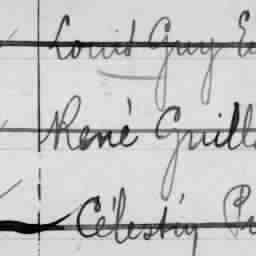 Louis Guy E
René Guill
Célestin P